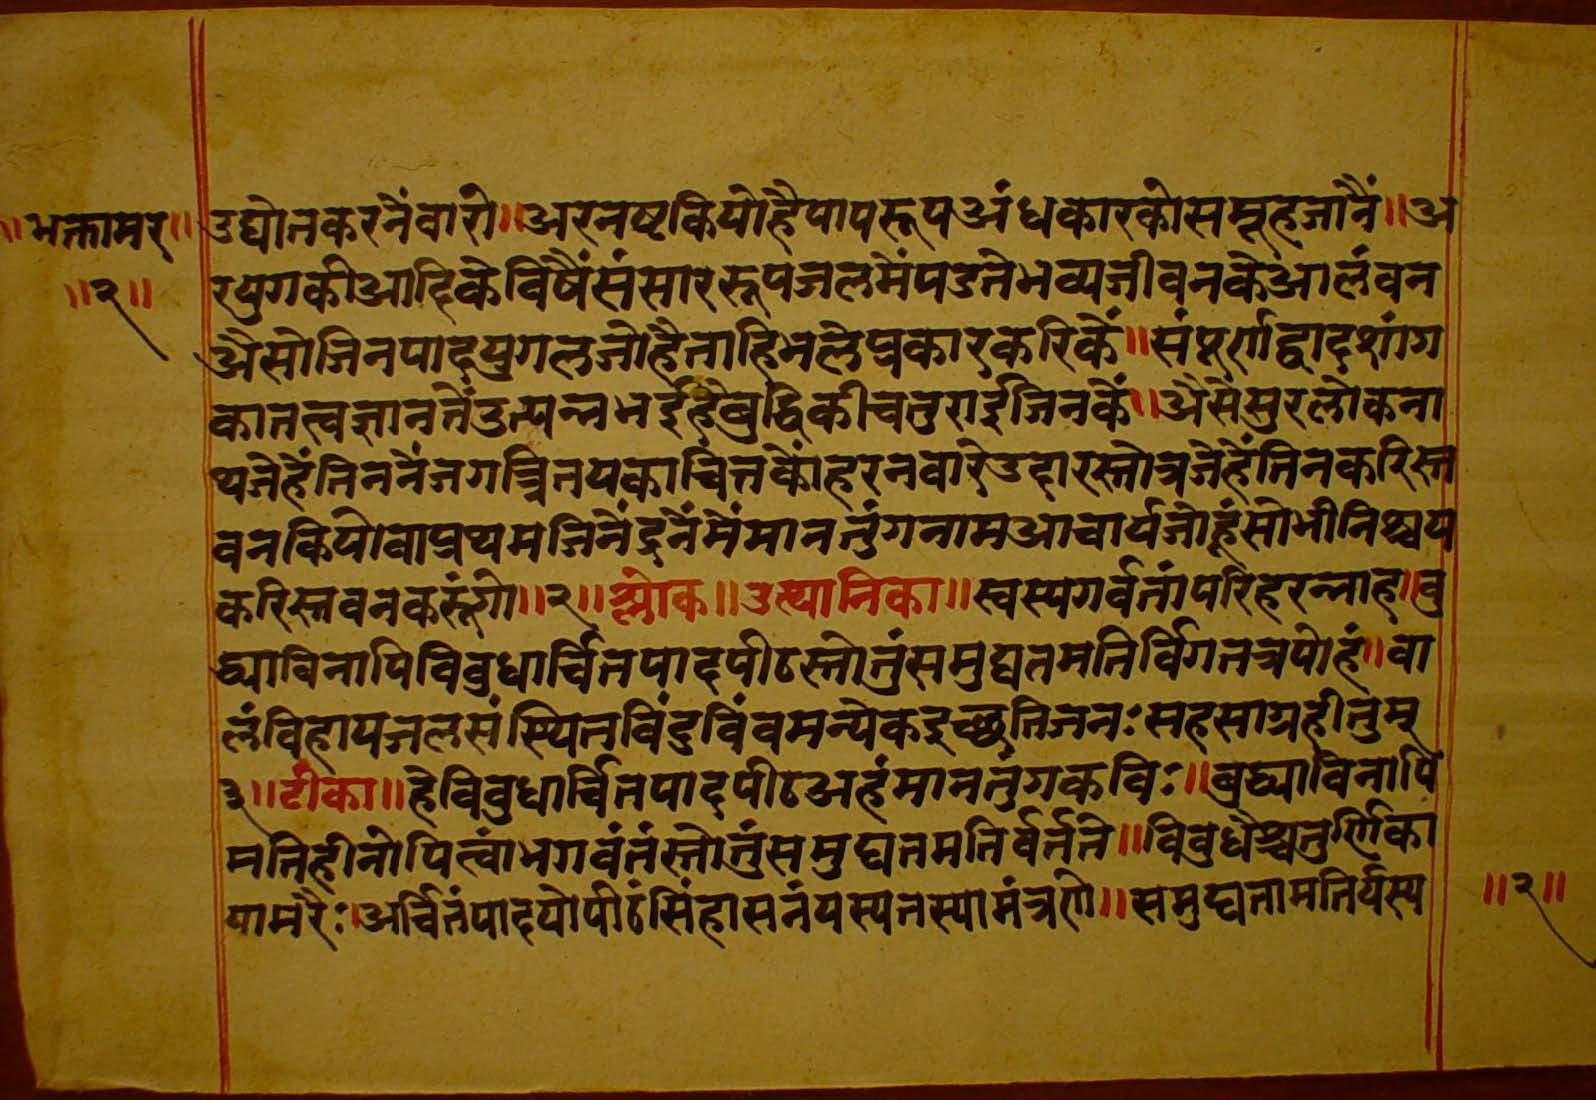 ॥भक्तामर॥
॥२॥
उद्योतकरनैंवारो॥अरनष्टकियोहैपापरूपअंधकारकोसमूहजानैं॥अ
रयुगकीआदिकेविषैंसंसाररूपजलमेंपडतेभव्यजीवनकेआलंवन
अैसोजिनपादयुगलजोहैताहिभलेप्रकारकरिकें॥संपूर्णद्वादशांग
कातत्वज्ञानतैंउत्पन्नभईहैबुद्धिकीचतुराईजिनकैं॥अैसेसुरलोकना
थजेहैंतिननैंजगत्त्रितयकाचित्तकोंहरनवारेउदारस्तोत्रजेहैंतिनकरिस्त
वनकियोवाप्रथमजिनेंद्रनैंमैंमानतुंगनामआचार्यजोहूंसोभीनिश्चय
करिस्तवनकरूंगो॥२॥श्लोक॥उत्थानिका॥स्वस्यगर्वतांपरिहरन्नाह॥वु
द्ध्याविनापिविवुधार्चितपादपीठस्तोतुंसमुद्यतमतिर्विगतत्रपोहं॥वा
लंविहायजलसंस्थितविंदुविंवमन्येकइच्छतिजनःसहसाग्रहीतुम्
३॥टीका॥हेविवुधार्चितपादपीठअहंमानतुंगकविः॥वुद्ध्याविनापि
मतिहीनोपित्वांभगवंतंस्तोतुंसमुद्यतमतिर्वर्त्तते॥विवुधैश्चतुर्णिका
यामरैः॥अर्चितंपादयोपीठंसिंहासनंयस्यतस्यामंत्रणे॥समुद्यतामतिर्यस्य
॥२॥